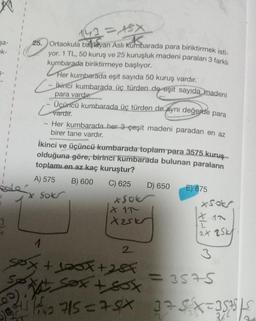 25. Ortaokula başlayan Aslı kumbarada para biriktirmek isti-
yor. 1 TL, 50 kuruş ve 25 kuruşluk madeni paraları 3 farklı
kumbarada biriktirmeye başlıyor.
- Her kumbarada eşit sayıda 50 kuruş vardır.
- İkinci kumbarada üç türden de eşit sayıda madeni
para vardır.
- Üçüncü kumbarada üç türden de aynı değerde para
vardır.
- Her kumbarada her 3 çeşit madeni paradan en az
birer tane vardır.
İkinci ve üçüncü kumbarada toplam para 3575 kuruş
olduğuna göre, birinci kumbarada bulunan paraların
toplamı en az kaç kuruştur?
A) 575 B) 600 C) 625 D) 650 E) 675
x 50kr
x 50kr
x 1TL
x 25kr
x 50kr
2x 25kr
1
2
3
50x + 100x + 25x
= 3575